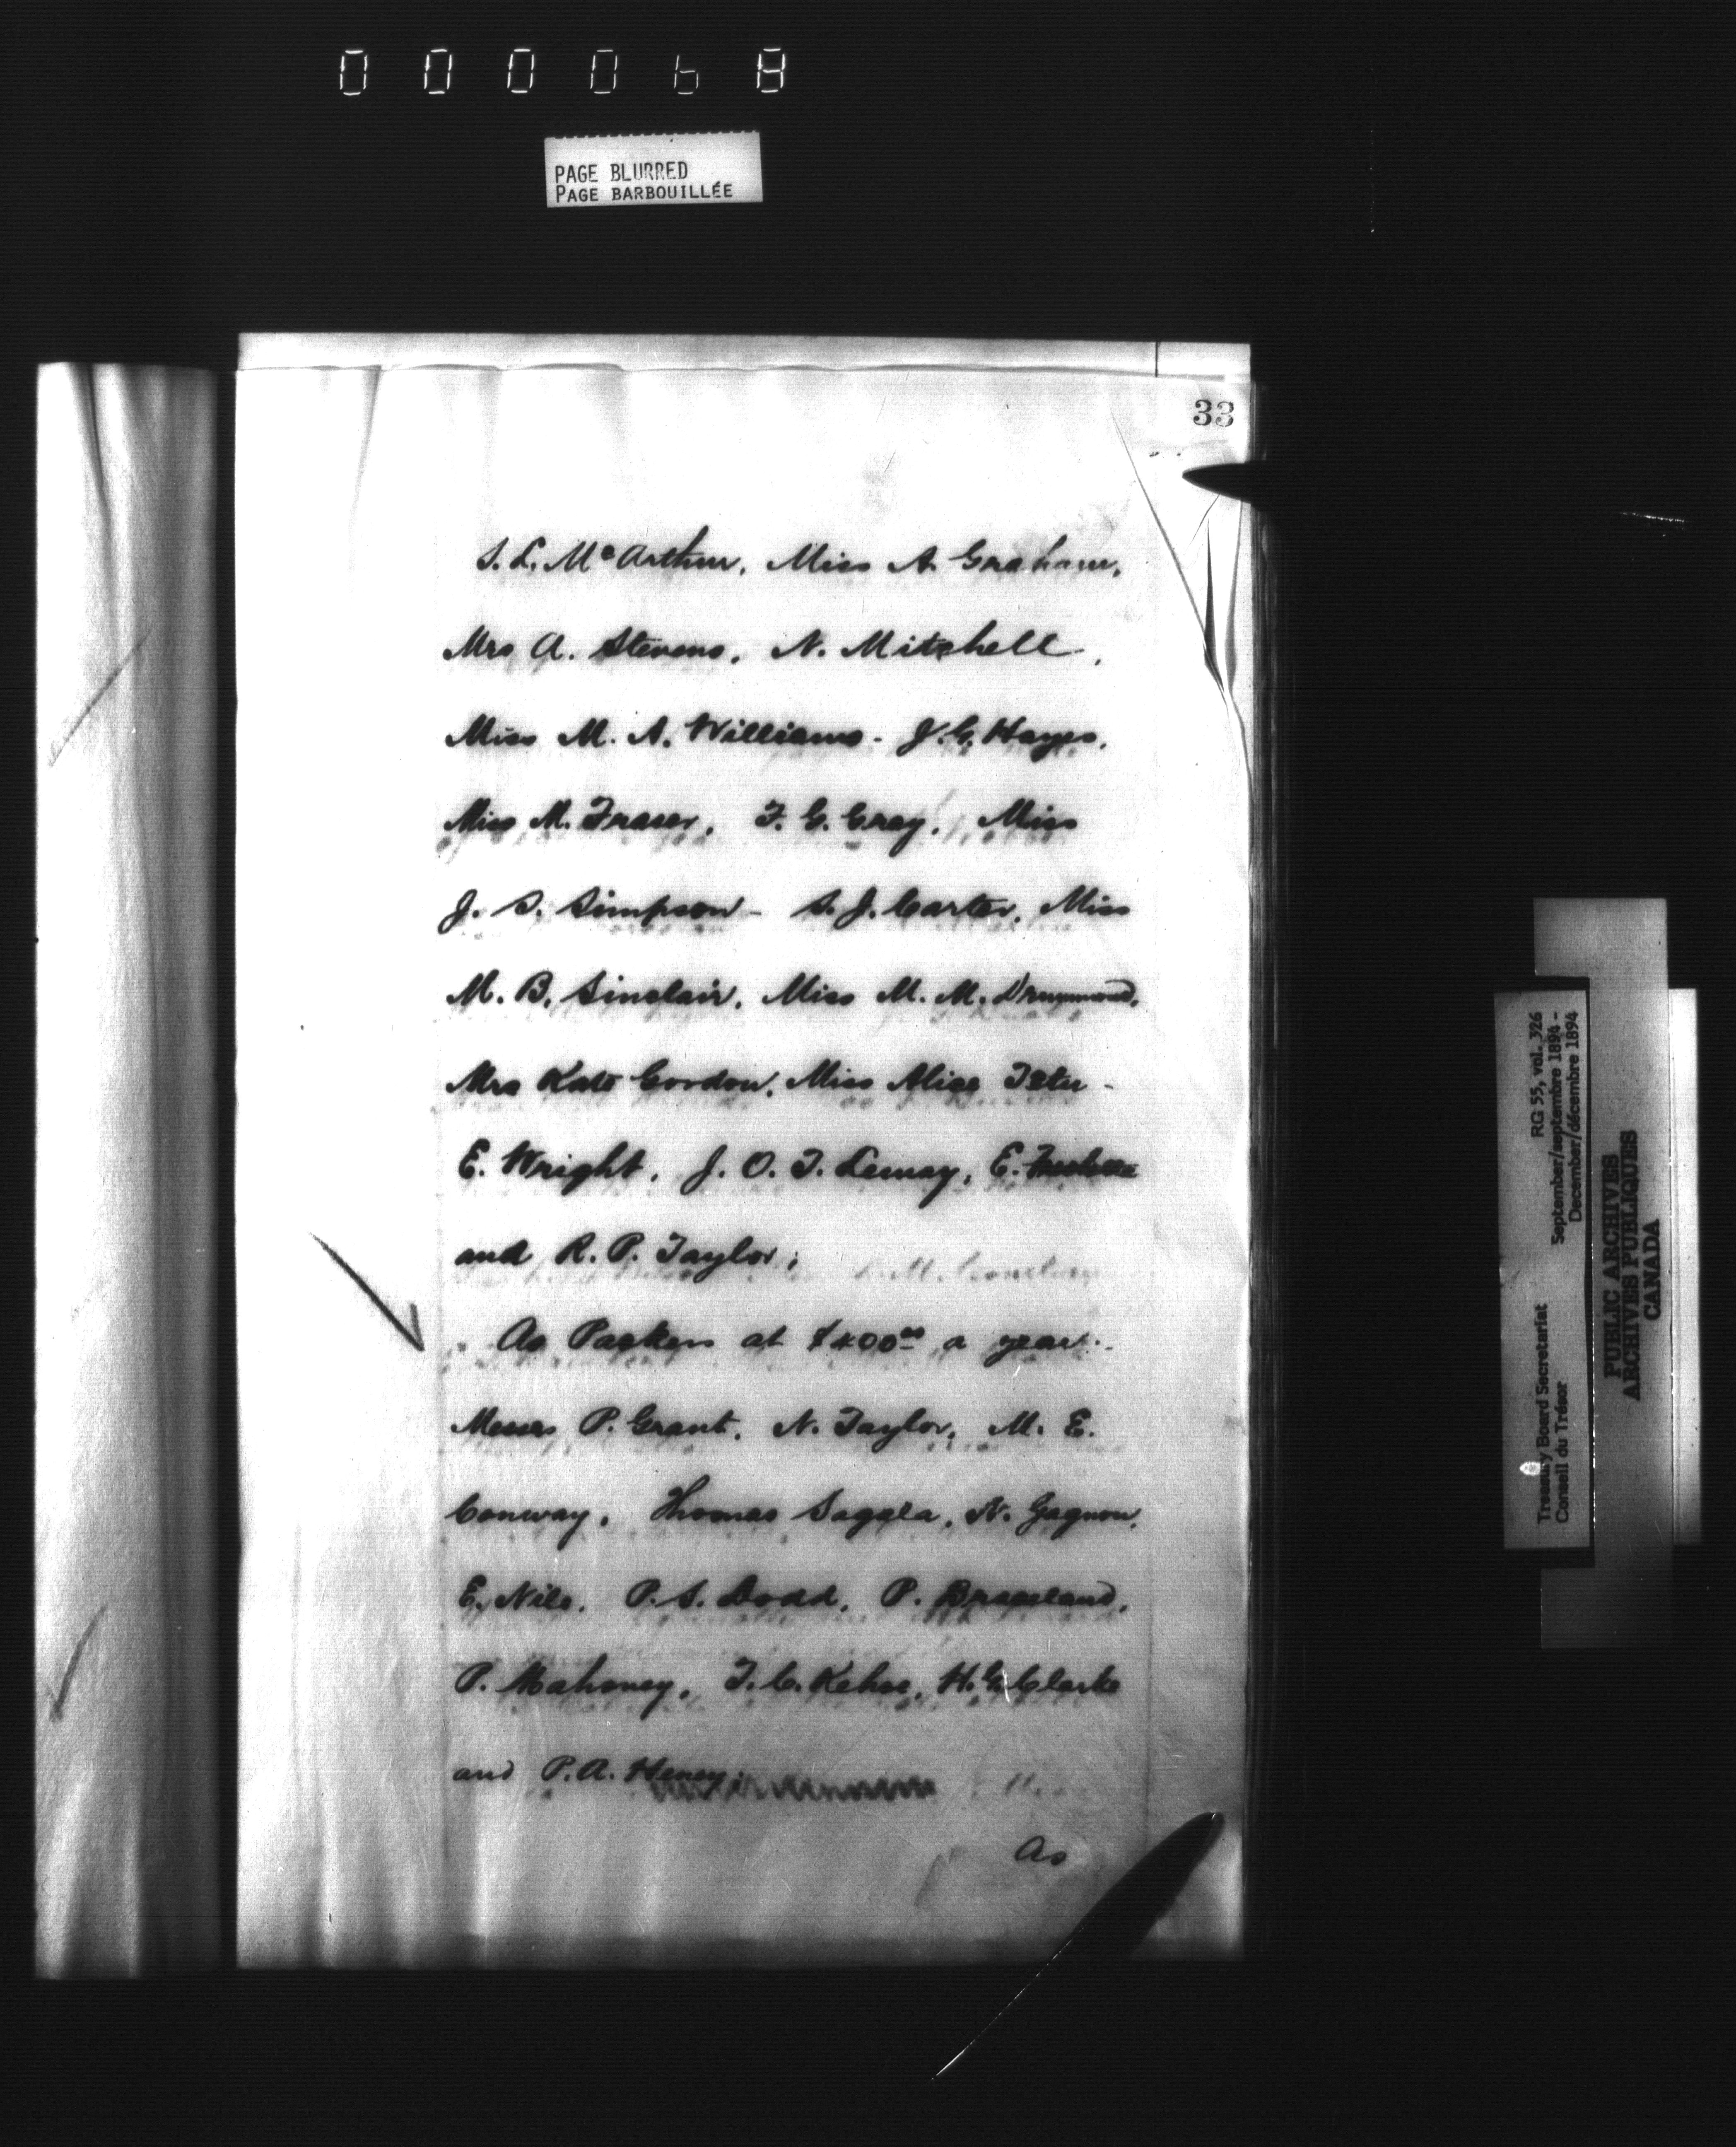 000068
PAGE BLURRED
PAGE BARBOUILLÉE
33
S. L. McArthur, Miss A. Graham,
Mrs A. Stevens, N. Mitchell,
Miss M. A. Williams - J. G. Hayes,
Miss M. Fraser, F. G. Gray, Miss
J. S. Simpson - S. J. Carter, Miss
M. B. Sinclair, Miss M. M. Drummond,
Mrs Kate Gordon, Miss Alice
E. Wright, J. O. T. Lemay, E. Frechette
and R. P. Taylor;
As Packers at $400.00 a year:-
Messrs P. Grant, N. Taylor, M. E.
Conway, Thomas Sagala, N. Gagnon,
E. Nile, P. S. Dodd, P.
P. Mahoney, T. C. Kehoe, H. G. Clarke
and P. A. Heney;
As
Treasury Board Secretariat RG 55, vol. 326
Conseil du Trésor September/septembre 1894 -
December/décembre 1894
PUBLIC ARCHIVES
ARCHIVES PUBLIQUES
CANADA